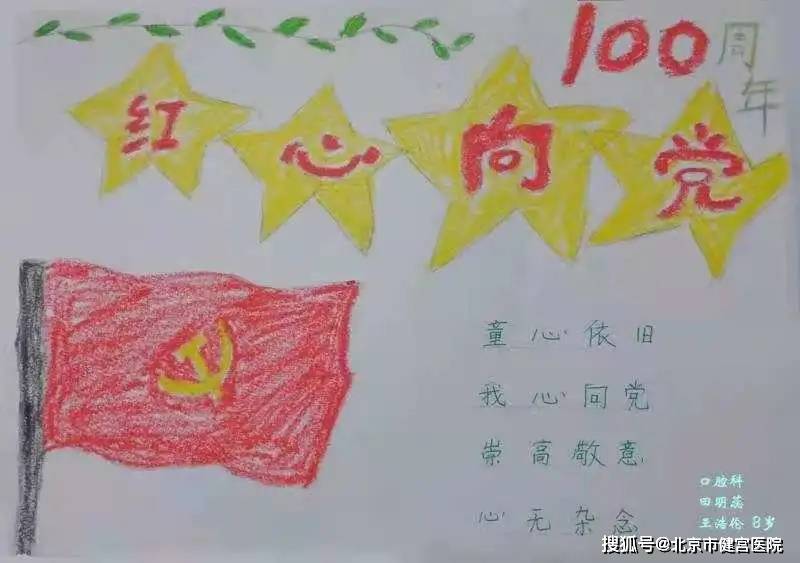 100周年
红心向党
童心依旧
我心向党
崇高敬意
心无杂念
口腔科
田明蕊
王浩伦 8岁
搜狐号@北京市健宫医院